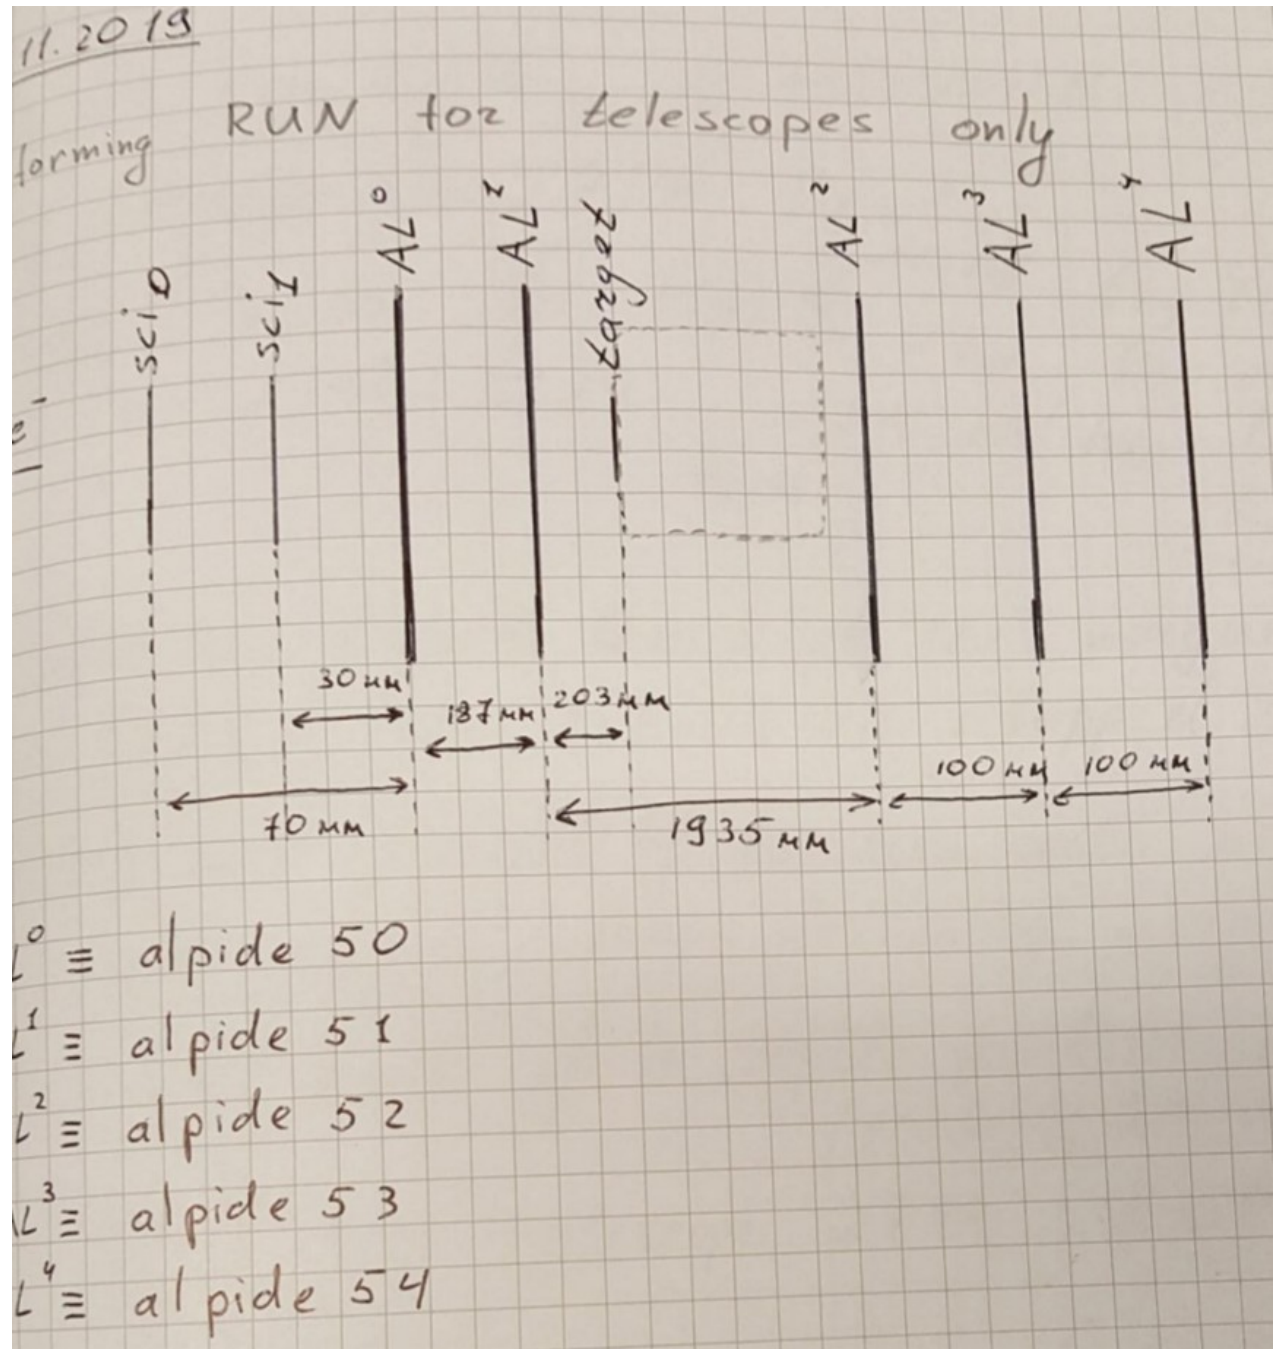 11.2019
forming RUN for telescopes only
sci0 sci1 AL⁰ AL¹ target AL² AL³ AL⁴
e⁻
30 мм
187 мм 203 мм
100 мм 100 мм
70 мм 1935 мм
L⁰ ≡ alpide 50
L¹ ≡ alpide 51
L² ≡ alpide 52
AL³ ≡ alpide 53
L⁴ ≡ alpide 54